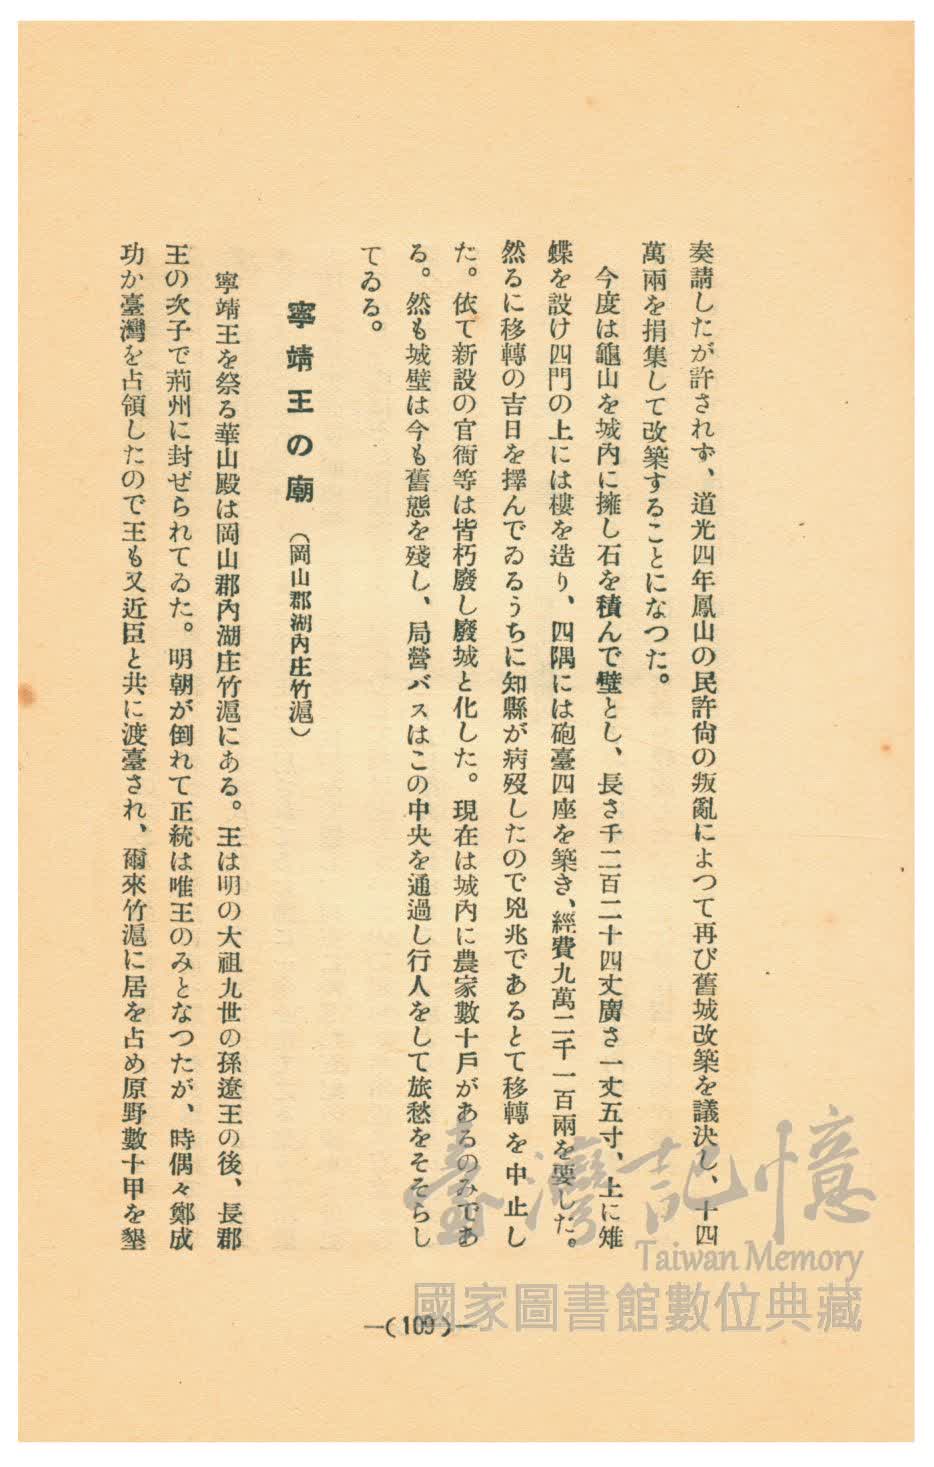 奏請したが許されず、道光四年鳳山の民許尙の叛亂によつて再び舊城改築を議決し、十四
萬兩を捐集して改築することになつた。
今度は龜山を城內に擁し石を積んで壁とし、長さ千二百二十四丈廣さ一丈五寸、上に雉
蝶を設け四門の上には樓を造り、四隅には砲臺四座を築き、經費九萬二千一百兩を要した。
然るに移轉の吉日を擇んでゐるうちに知縣が病歿したので兇兆であるとて移轉を中止し
た。依て新設の官衙等は皆朽廢し廢城と化した。現在は城內に農家數十戶があるのみであ
る。然も城壁は今も舊態を殘し、局營バスはこの中央を通過し行人をして旅愁をそそらし
てゐる。
寧靖王の廟（岡山郡湖內庄竹滬）
寧靖王を祭る華山殿は岡山郡內湖庄竹滬にある。王は明の大祖九世の孫遼王の後、長郡
王の次子で荊州に封ぜられてゐた。明朝が倒れて正統は唯王のみとなつたが、時偶々鄭成
功か臺灣を占領したので王も又近臣と共に渡臺され、爾來竹滬に居を占め原野數十甲を墾
—(109)—
臺灣記憶
Taiwan Memory
國家圖書館數位典藏